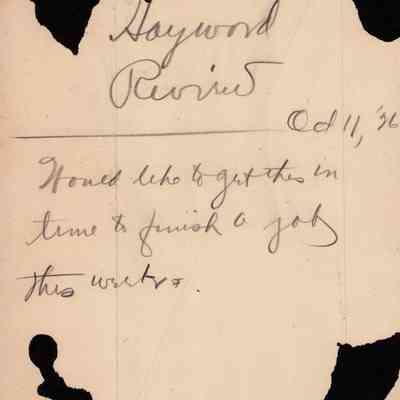 Hayword
Oct 11, '26
Would like to get this in
time to finish a job
this